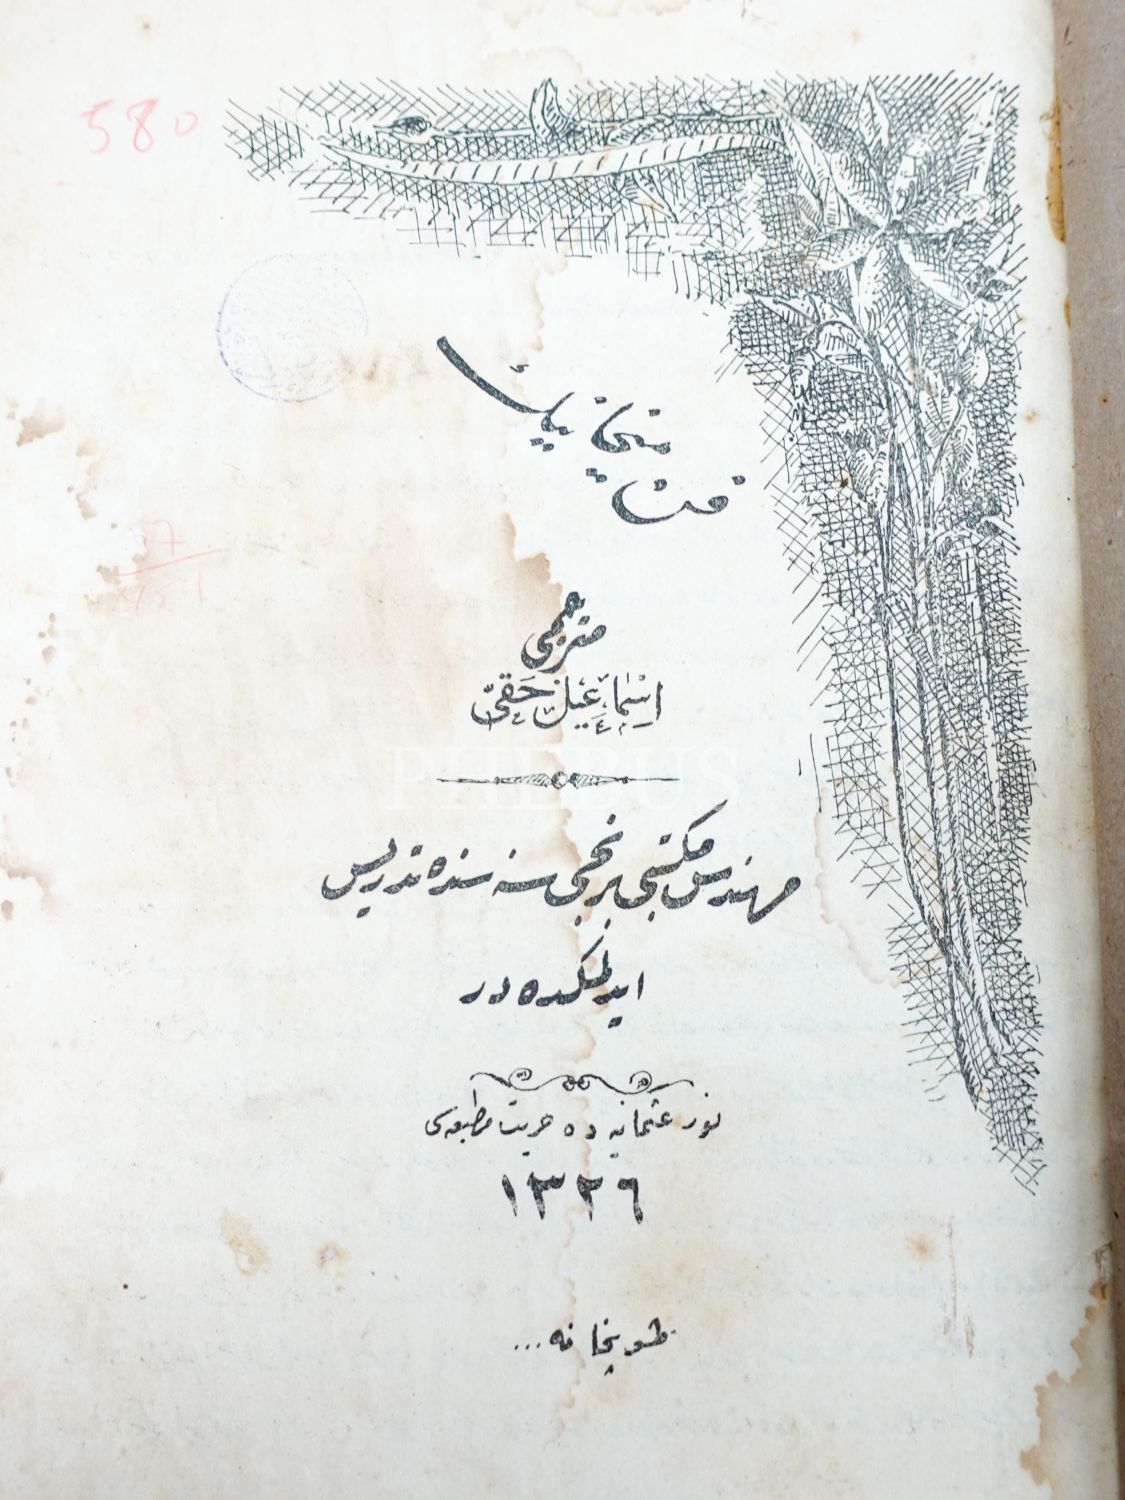 580
فن
مترجمی
اِسْمَاعِیل حَقّی
PHEBUS
مهندس مكتبی برنجی سنه سنده تدریس
ایدلمكده در
نور عثمانیه ده حریت مطبعه سی
١٣٢٦
طوپخانه ...